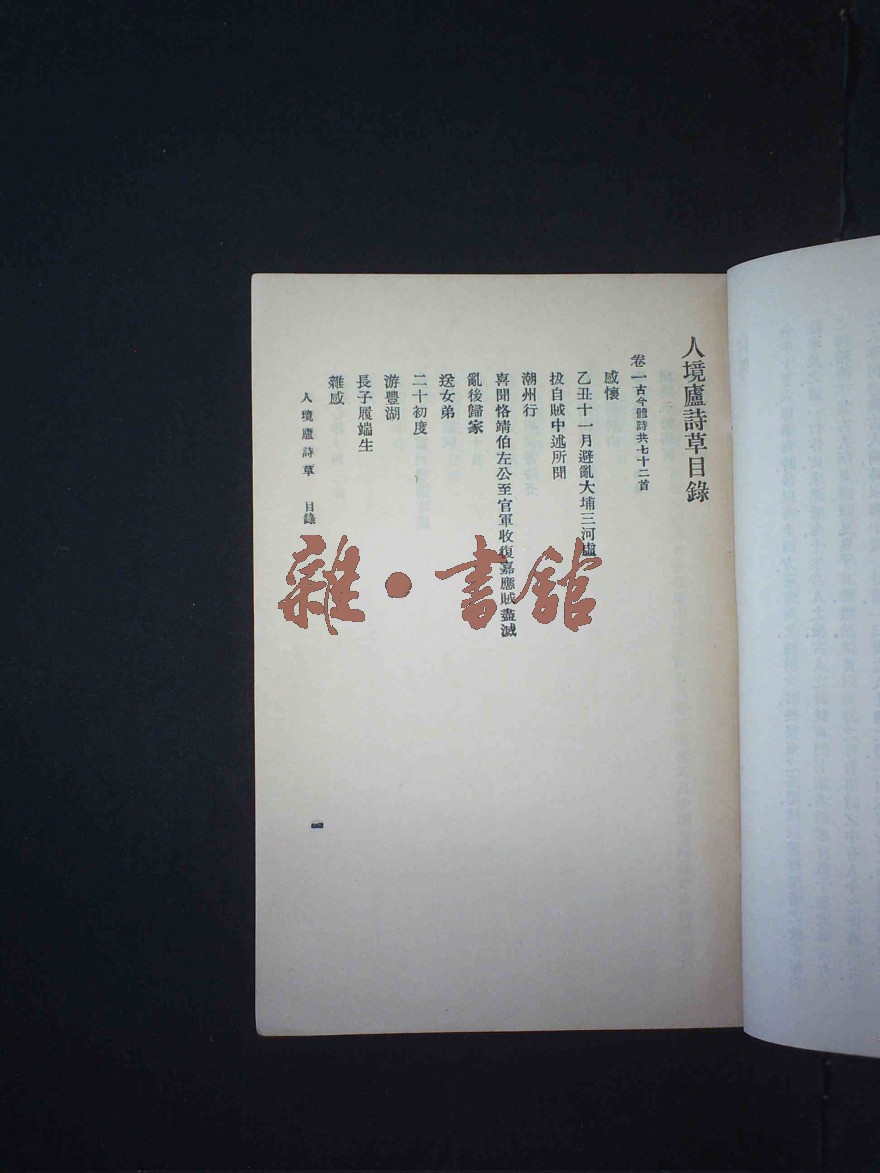 人境廬詩草目錄
卷一古今體詩共七十二首
感懷
乙丑十一月避亂大埔三河虛
拔自賊中述所聞
潮州行
喜聞恪靖伯左公至官軍收復嘉應賊盡滅
亂後歸家
送女弟
二十初度
游豐湖
長子履端生
雜感
人境廬詩草 目錄
一
雜·書館